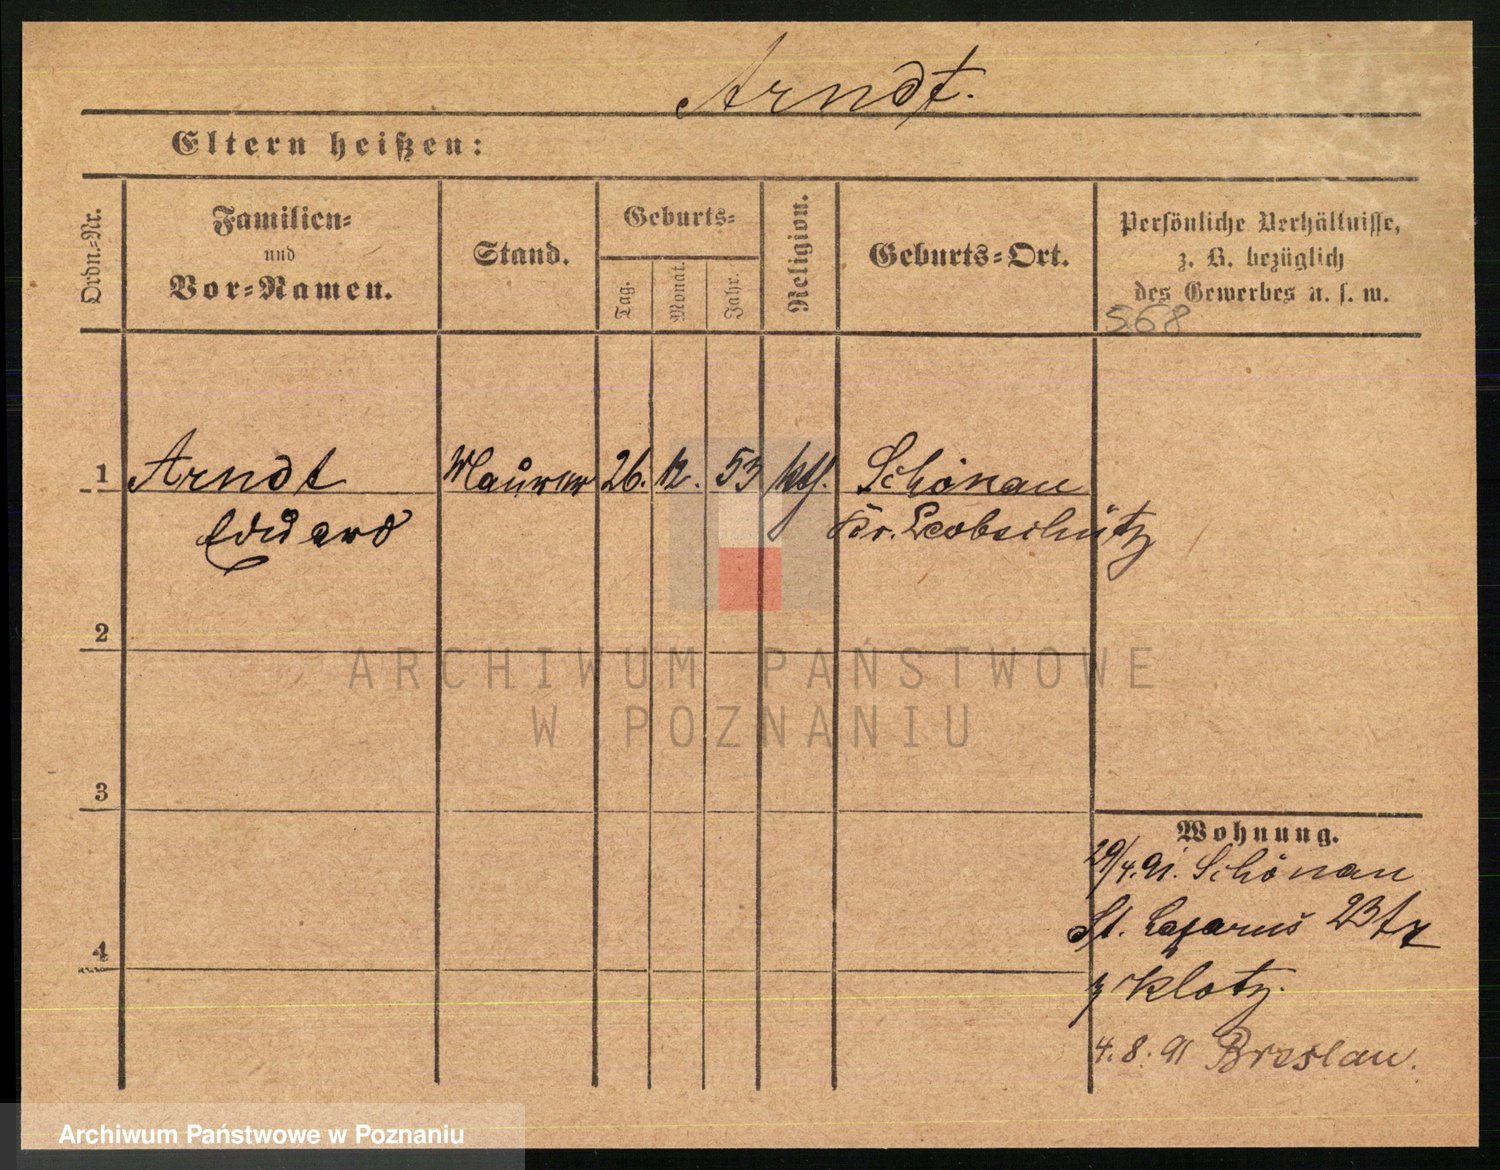 Arndt.
Eltern heißen:
Ordn.=Nr.
Familien=
und
Vor=Namen.
Stand.
Geburts=
Tag.
Monat.
Jahr.
Religion.
Geburts=Ort.
Persönliche Verhältnisse,
z. B. bezüglich
des Gewerbes u. s. w.
568
1 Arndt Maurer 26. 12. 53 kth. Schönau
Eduard Kr. Leobschütz
2
ARCHIWUM PAŃSTWOWE
W POZNANIU
3
Wohnung.
29/4.91. Schönau
St. Lazarus
4
Klotz.
4.8.91 Breslau.
Archiwum Państwowe w Poznaniu